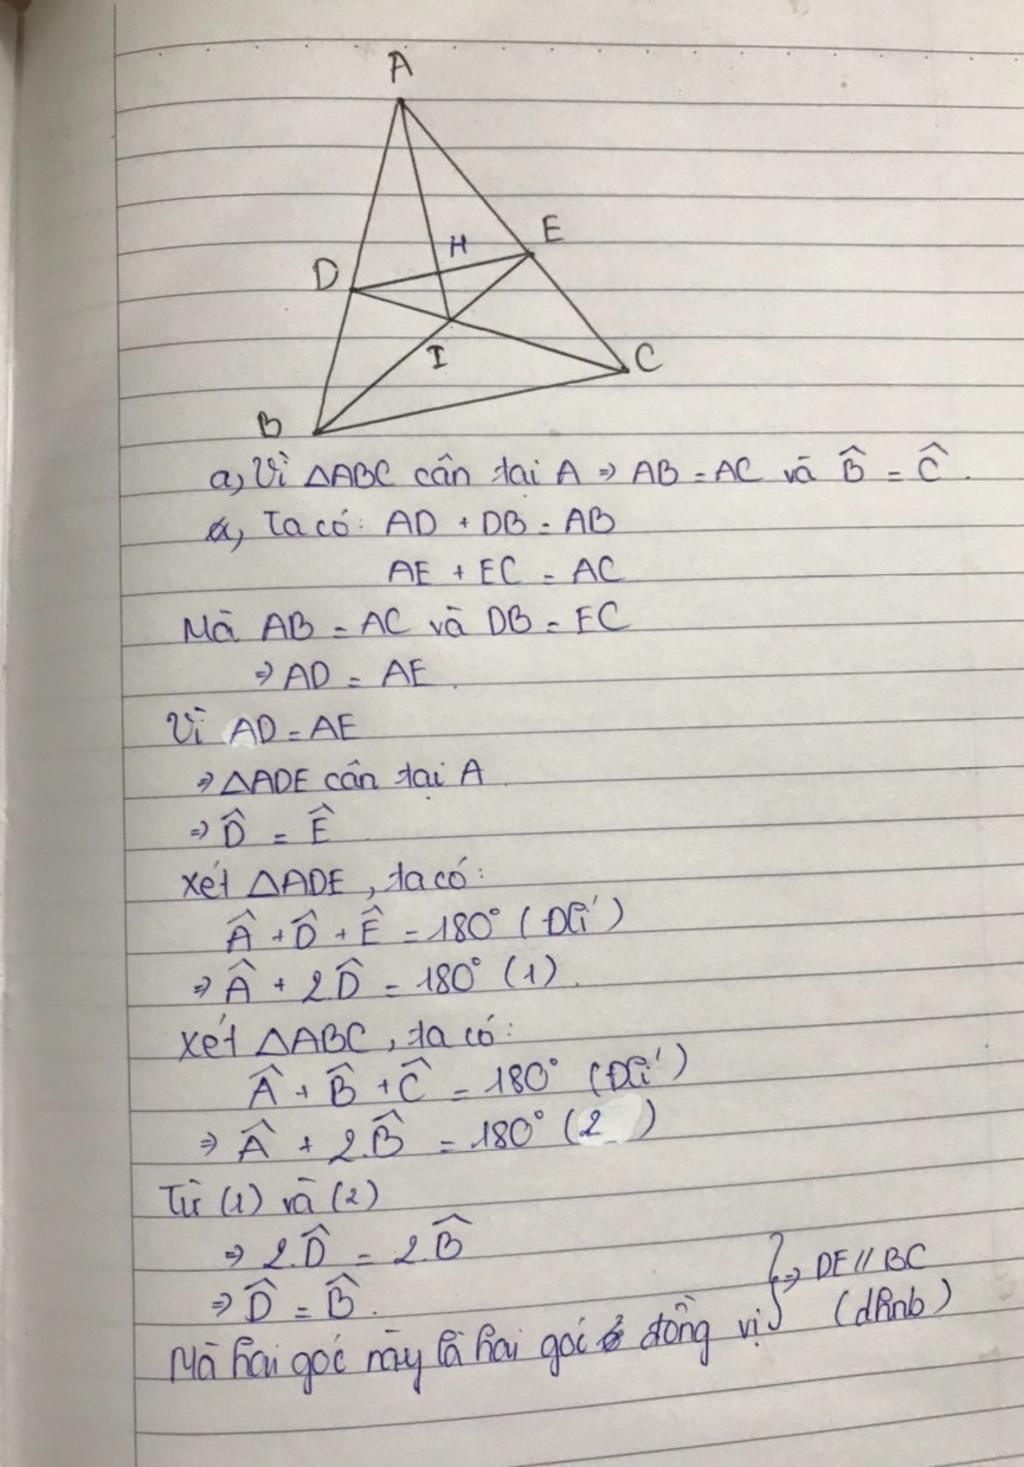 A
H
E
D
I
C
B
a, Vì △ABC cân tai A ⇒ AB = AC và B̂ = Ĉ.
a, Ta có: AD + DB = AB
AE + EC = AC
Mà AB = AC và DB = EC
⇒ AD = AE.
Vì AD = AE
⇒ △ADE cân tại A
⇒ D̂ = Ê
Xét △ADE, ta có:
Â + D̂ + Ê = 180° (ĐLí)
⇒ Â + 2D̂ = 180° (1).
Xét △ABC, ta có:
Â + B̂ + Ĉ = 180° (ĐLí)
⇒ Â + 2.B̂ = 180° (2)
Từ (1) và (2)
⇒ 2.D̂ = 2.B̂
⇒ D̂ = B̂.
Mà hai góc này là hai góc ở đồng vị } ⇒ DE // BC
(dhnb)